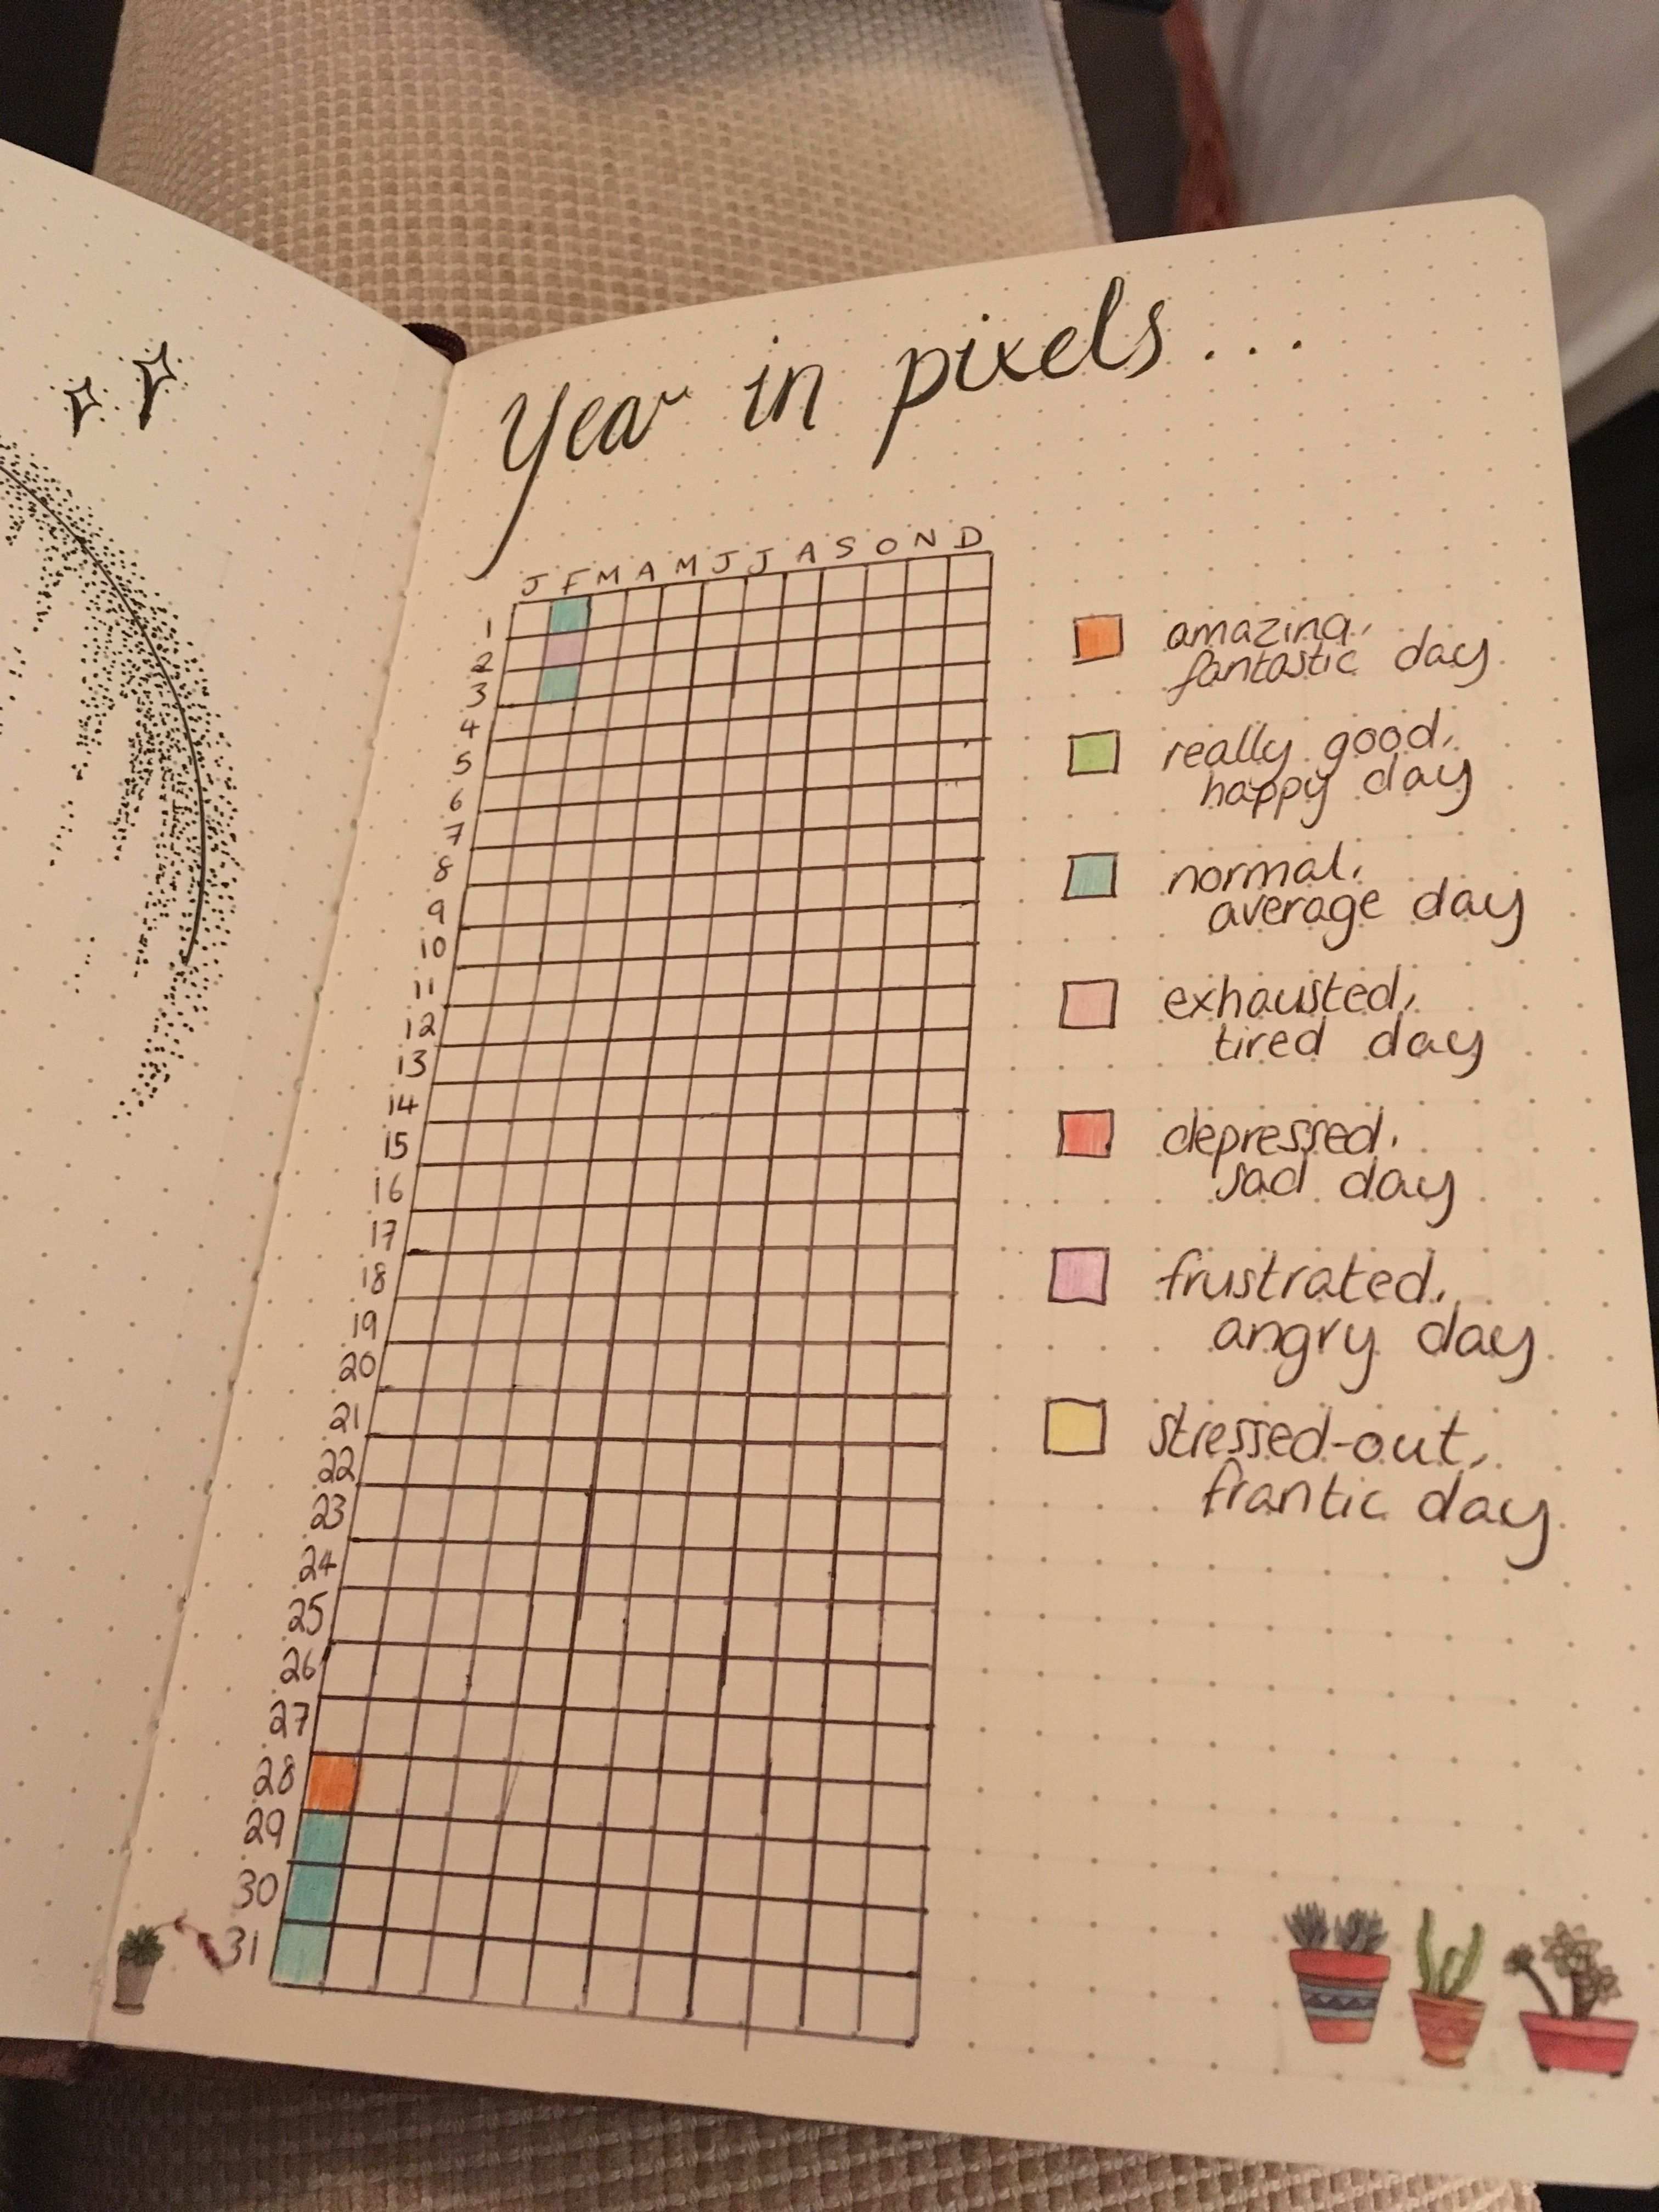 Year in pixels...
J F M A M J J A S O N D
1
2
3
4
5
6
7
8
9
10
11
12
13
14
15
16
17
18
19
20
21
22
23
24
25
26
27
28
29
30
31
amazing,
fantastic day
really good,
happy day
normal,
average day
exhausted,
tired day
depressed,
sad day
frustrated,
angry day
stressed-out,
frantic day